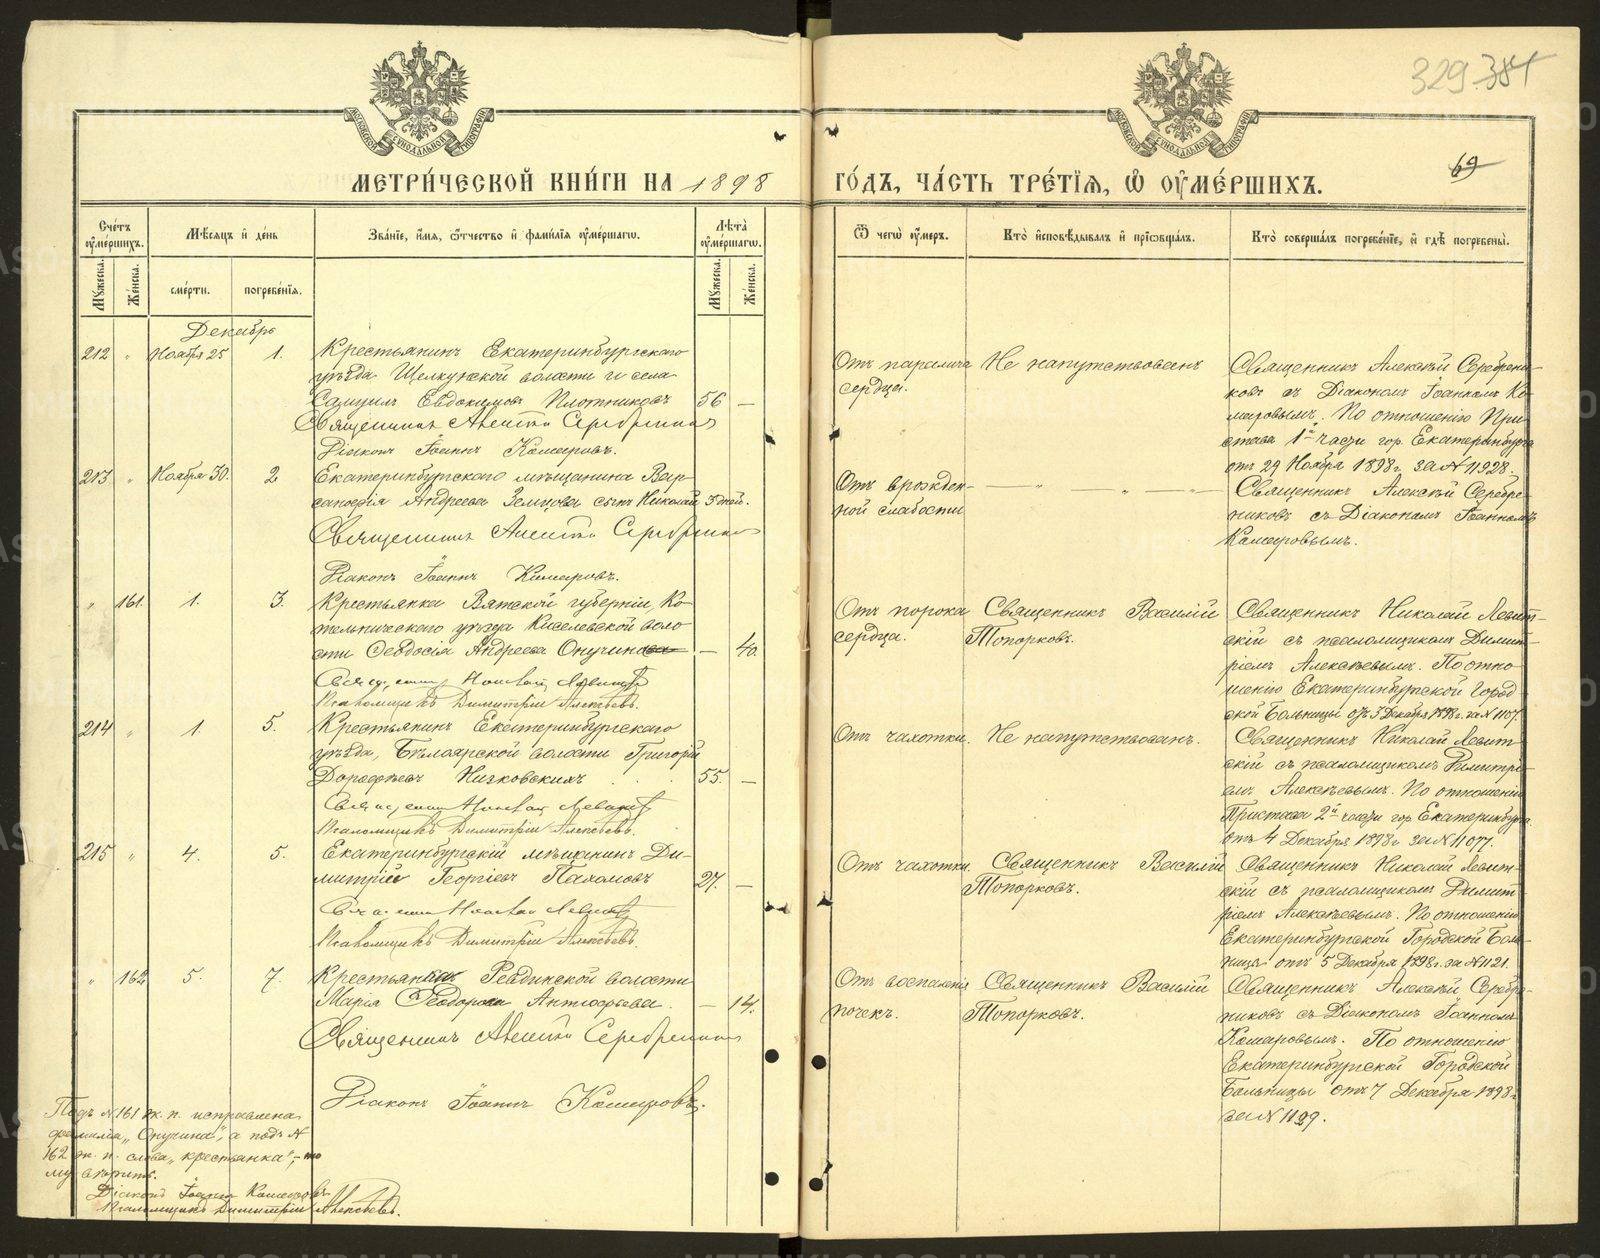 329 384
69
МОСКОВСКОЙ СУНОДАЛЬНОЙ ТИПОГРАФІИ
МОСКОВСКОЙ СУНОДАЛЬНОЙ ТИПОГРАФІИ
МЕТРИ́ЧЕСКОЙ КНИ́ГИ НА 1898
ГО́ДЪ, ЧА́СТЬ ТРЕ́ТІѦ, Ѡ ОУМЕ́РШИХЪ.
Сче́тъ оуме́ршихъ.
Мѣсѧцъ и де́нь
Зва́нїе, и́мѧ, ѻ́тчество и фами́лїѧ оуме́ршагѡ.
Лѣта̀ оуме́ршагѡ.
Мꙋжеска.
Же́нска.
сме́рти.
погребе́нїѧ.
Мꙋжеска.
Же́нска.
Ѿ чегѡ̀ оу́меръ.
Кто̀ и҆сповѣ́дывалъ и҆ прїѡбща́лъ.
Кто̀ соверша́лъ погребе́нїе, и҆ гдѣ̀ погребены̀.
Декабрь
212 " Ноября 25 1.
Крестьянинъ Екатеринбургскаго
уѣзда Щелкунской волости и села
Самуилъ Евдокимовъ Плотниковъ 56 —
Священникъ Алексѣй Серебренниковъ
Діаконъ Іоаннъ Комаровъ.
Отъ паралича
сердца.
Не напутствованъ
Священникъ Алексѣй Серебрени-
ковъ съ Діакономъ Іоанномъ Ко-
маровымъ. По отношенію При-
става 1й части гор. Екатеринбурга
отъ 29 Ноября 1898г. за № 11928.
213 " Ноября 30. 2
Екатеринбургскаго мѣщанина Вар-
санофія Андреева Земцова сынъ Николай 3 дней.
Священникъ Алексѣй Серебренниковъ
Діаконъ Іоаннъ Комаровъ.
Отъ врожден-
ной слабости
— " — " —
Священникъ Алексѣй Серебре-
никовъ съ Діакономъ Іоанномъ
Комаровымъ.
" 161. 1. 3.
Крестьянка Вятской губерніи, Ко-
тельническаго уѣзда Киселевской воло
сти Ѳеодосія Андреева Опучинова — 40.
Священникъ Николай Левитскій
Псаломщикъ Димитрій Алексѣевъ.
Отъ порока
сердца.
Священникъ Василій
Топорковъ.
Священникъ Николай Левит-
скій съ псаломщикомъ Димит-
ріемъ Алексѣевымъ. По отно
шенію Екатеринбургской Город-
ской Больницы отъ 3 Декабря 1898г. за № 1107.
214 " 1. 5.
Крестьянинъ Екатеринбургскаго
уѣзда, Бѣлоярской волости Григорій
Дорофѣевъ Низковскихъ 55. —
Священникъ Николай Левитскій
Псаломщикъ Димитрій Алексѣевъ.
Отъ чахотки.
Не напутствованъ.
Священникъ Николай Левит
скій съ псаломщикомъ Димитрі-
емъ Алексѣевымъ. По отношенію
Пристава 2й части гор. Екатеринбурга
отъ 4 Декабря 1898г за № 11077.
215 " 4. 5.
Екатеринбургскій мѣщанинъ Ди-
митрій Георгіевъ Пахомовъ 27. —
Священникъ Николай Левитскій
Псаломщикъ Димитрій Алексѣевъ.
Отъ чахотки.
Священникъ Василій
Топорковъ.
Священникъ Николай Левит-
скій съ псаломщикомъ Димит-
ріемъ Алексѣевымъ. По отношенію
Екатеринбургской Городской Боль-
ницы отъ 5 Декабря 1898г. за № 1121.
" 162 5. 7.
Крестьянка Ревдинской волости
Марія Ѳеодорова Антюфьева. — 14.
Священникъ Алексѣй Серебренниковъ
Діаконъ Іоаннъ Комаровъ.
Отъ воспаленія
почекъ.
Священникъ Василій
Топорковъ.
Священникъ Алексѣй Серебре-
никовъ съ Діакономъ Іоанномъ
Комаровымъ. По отношенію
Екатеринбургской Городской
Больницы отъ 7 Декабря 1898г.
за № 1199.
Подъ № 161 ж. п. исправлена
фамилія „Опучина", а подъ №
162 ж. п. слова „крестьянка", — то
му вѣрить.
Діаконъ Іоаннъ Комаровъ
Псаломщикъ Димитрій Алексѣевъ.